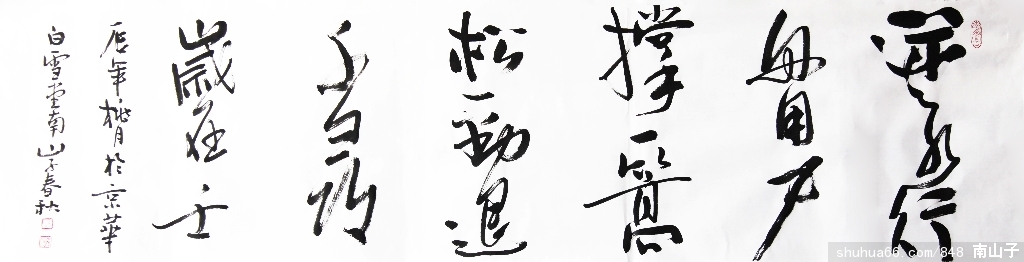 逆水行
舟用力
撑一篙
松劲退
千尋
歲在壬
辰年月於京華
白雪堂南山子春秋
shuhua66.com/848 南山子